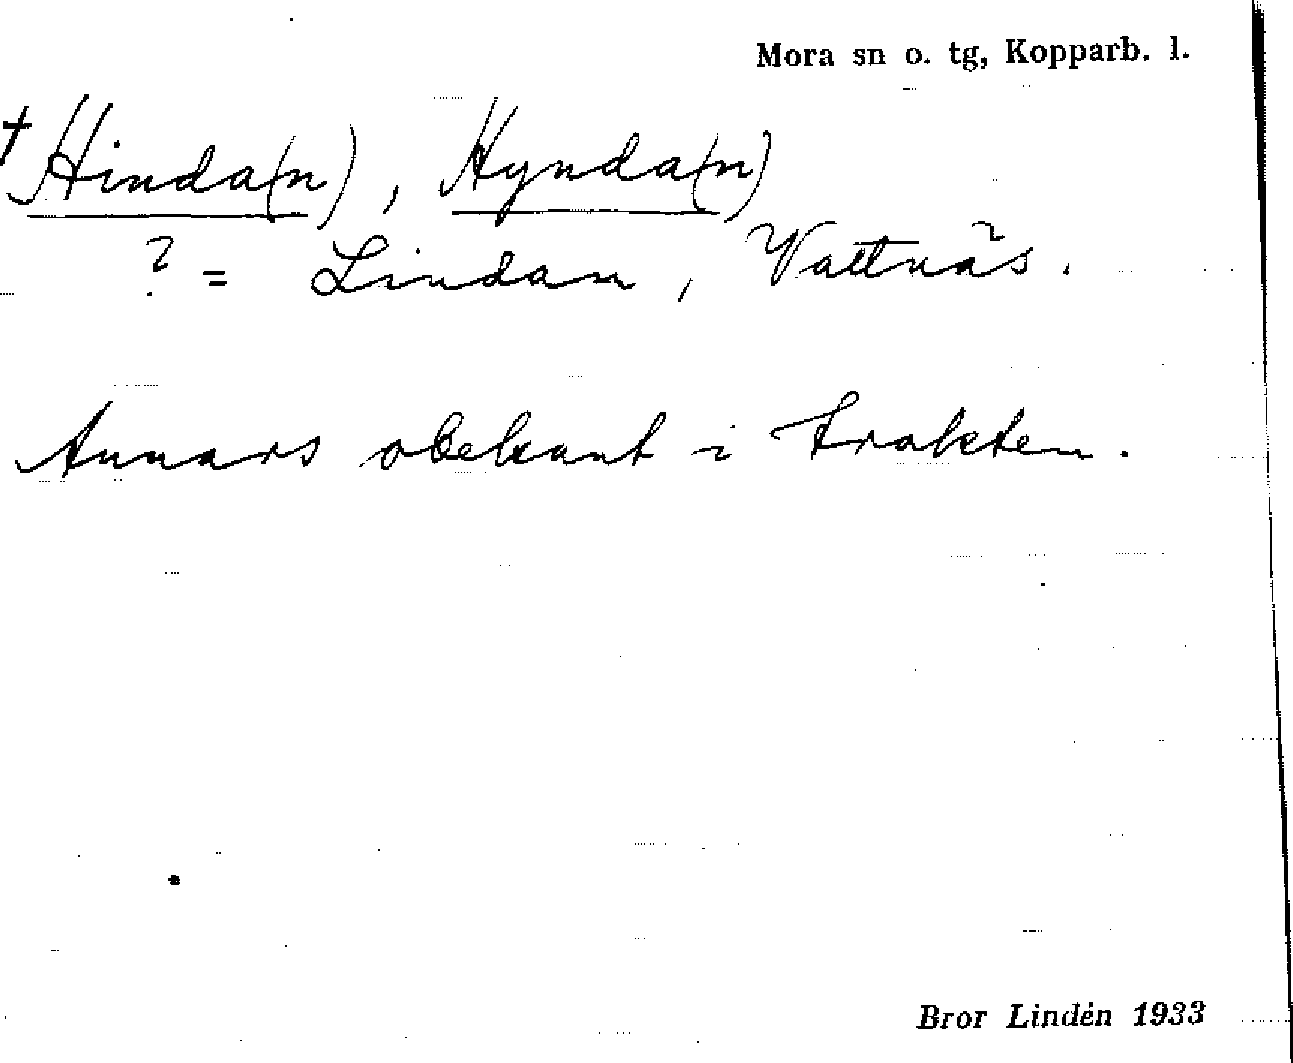 Mora sn o. tg, Kopparb. l.
† Hinda(n), Hynda(n)
? = Lindan, Vattnäs.
Annars obekant i trakten.
Bror Lindén 1933